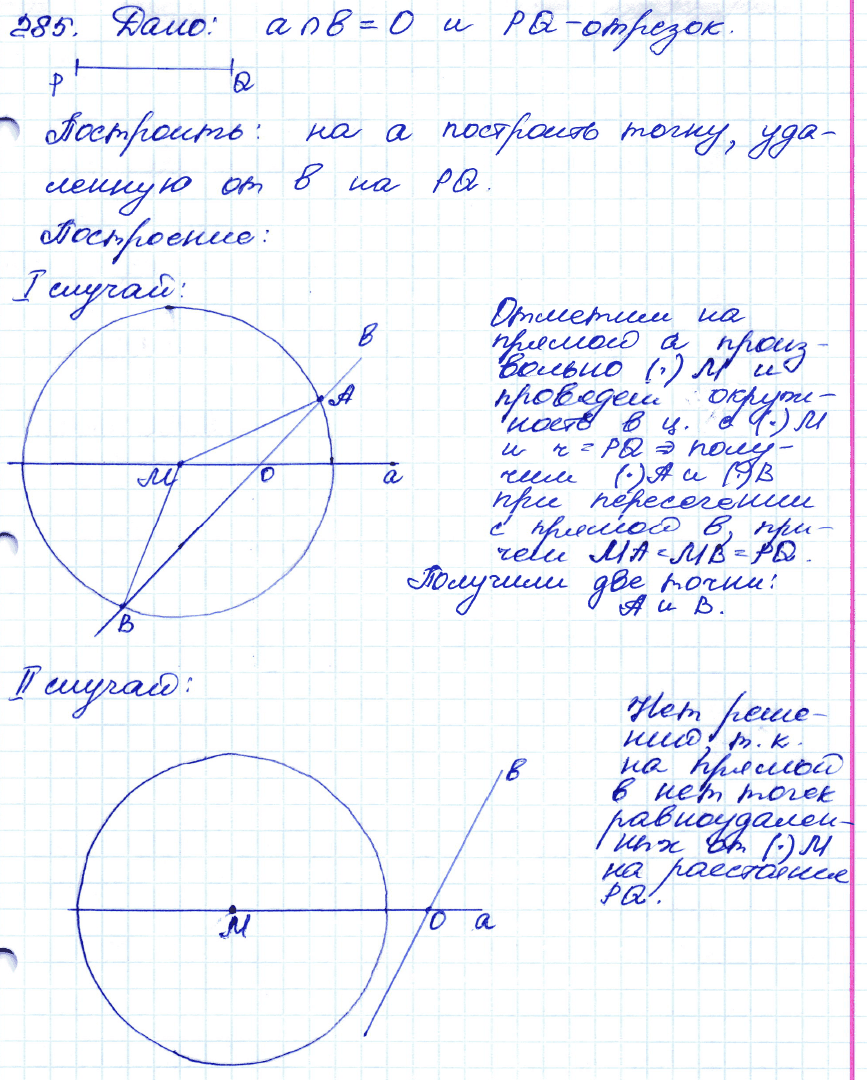 285. Дано: a ∩ b = O и PQ - отрезок.
P Q
Построить: на a построить точку, уда-
ленную от b на PQ.
Построение:
I случай:
Отметим на
прямой a произ-
вольно (·) M и
проведем окруж-
ность в ц. с (·) M
и r = PQ ⇒ полу-
чим (·) A и (·) B
при пересечении
с прямой b, при-
чем MA = MB = PQ.
Получили две точки:
A и B.
b
A
M O a
B
II случай:
Нет реше-
ний, т.к.
на прямой
b нет точек
равноудален-
ных от (·) M
на расстояние
PQ.
b
M O a